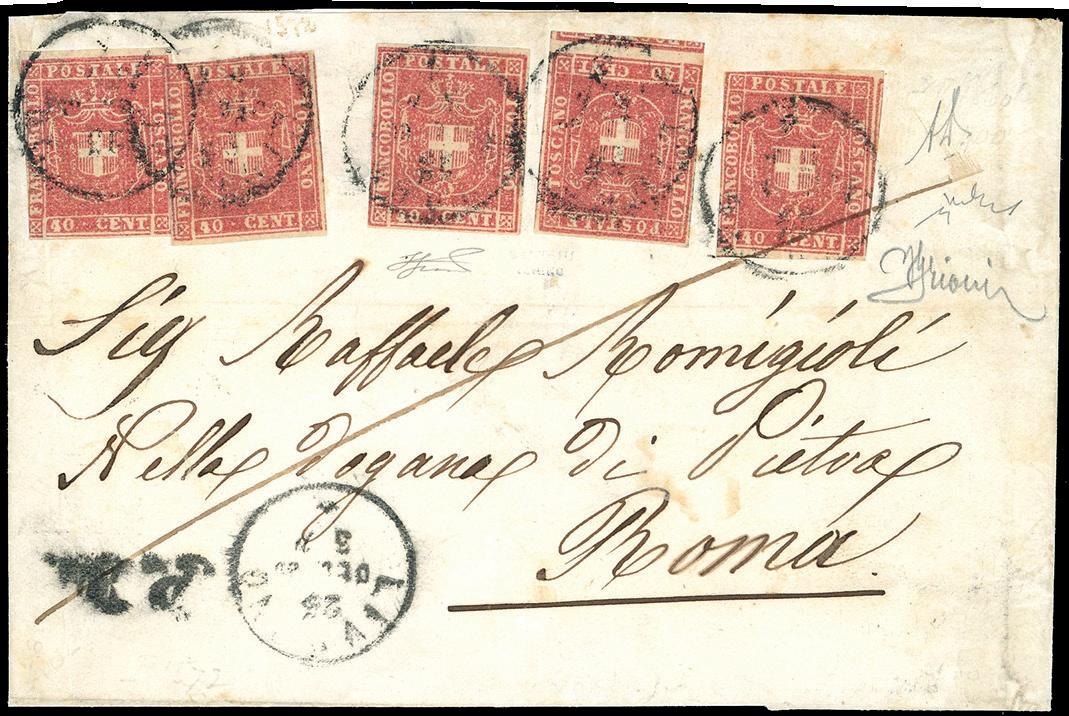 1572
POSTALE
FRANCOBOLLO TOSCANO
40 CENT
POSTALE
FRANCOBOLLO TOSCANO
40 CENT
POSTALE
FRANCOBOLLO TOSCANO
40 CENT
40 CENT
FRANCOBOLLO TOSCANO
POSTALE
POSTALE
FRANCOBOLLO TOSCANO
40 CENT
Sig Raffaele Romigioli
Nella Dogana di Pietra
Roma.
LIVORNO
23
DEC
3
P.D.